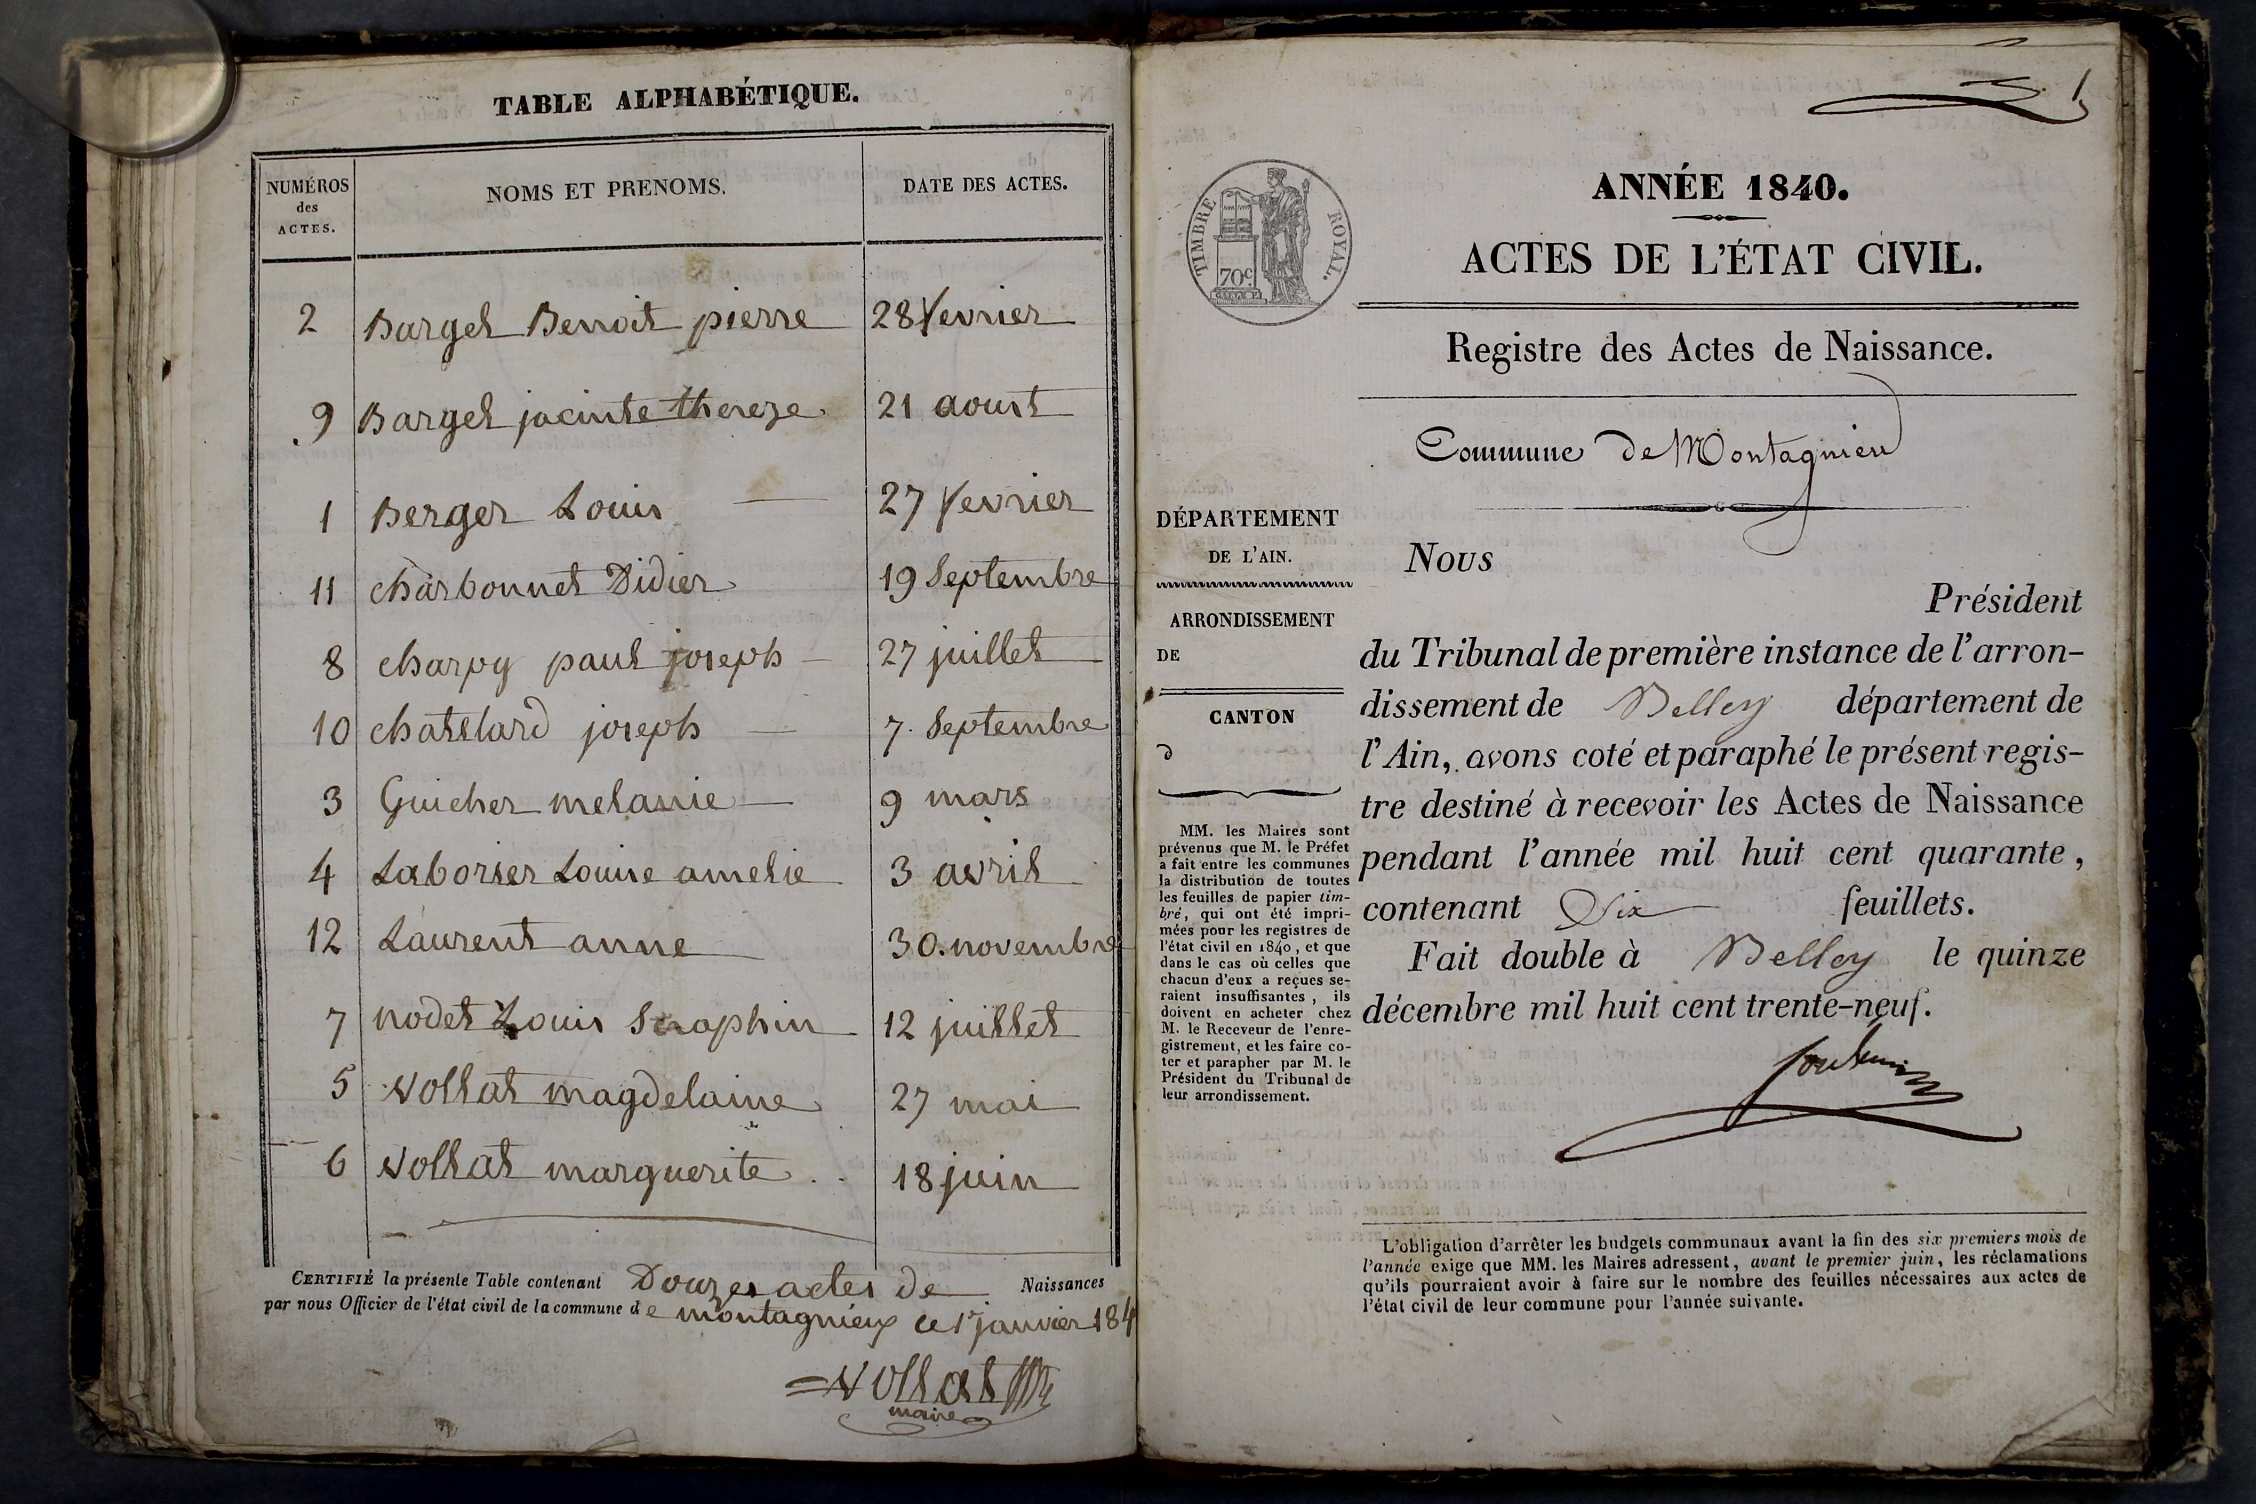 TABLE ALPHABÉTIQUE.
NUMÉROS
des
ACTES.
NOMS ET PRENOMS.
DATE DES ACTES.
2 Barget Benoit pierre 28 fevrier
9 Barget jacinte thereze 21 aoust
1 Berger Louis 27 fevrier
11 charbonnet Didier 19 Septembre
8 charpy paul joseph 27 juillet
10 chatelard joseph 7. Septembre
3 Guicher melanie 9 mars
4 Laborier Louise amelie 3 avril
12 Laurent anne 30. novembre
7 nodet Louis Seraphin 12 juillet
5 Vollat magdelaine 27 mai
6 Vollat marguerite 18 juin
CERTIFIÉ la présente Table contenant Douzes actes de Naissances
par nous Officier de l'état civil de la commune de montagnieux ce 1er janvier 184
Vollat
maire
TIMBRE ROYAL.
70c
ANNÉE 1840.
ACTES DE L'ÉTAT CIVIL.
Registre des Actes de Naissance.
Commune de Montagnieu
DÉPARTEMENT
DE L'AIN.
ARRONDISSEMENT
DE
CANTON
d
MM. les Maires sont
prévenus que M. le Préfet
a fait entre les communes
la distribution de toutes
les feuilles de papier tim-
bré, qui ont été impri-
mées pour les registres de
l'état civil en 1840, et que
dans le cas où celles que
chacun d'eux a reçues se-
raient insuffisantes, ils
doivent en acheter chez
M. le Receveur de l'enre-
gistrement, et les faire co-
ter et parapher par M. le
Président du Tribunal de
leur arrondissement.
Nous
Président
du Tribunal de première instance de l'arron-
dissement de Belley département de
l'Ain, avons coté et paraphé le présent regis-
tre destiné à recevoir les Actes de Naissance
pendant l'année mil huit cent quarante,
contenant Six feuillets.
Fait double à Belley le quinze
décembre mil huit cent trente-neuf.
L'obligation d'arrêter les budgets communaux avant la fin des six premiers mois de
l'année exige que MM. les Maires adressent, avant le premier juin, les réclamations
qu'ils pourraient avoir à faire sur le nombre des feuilles nécessaires aux actes de
l'état civil de leur commune pour l'année suivante.